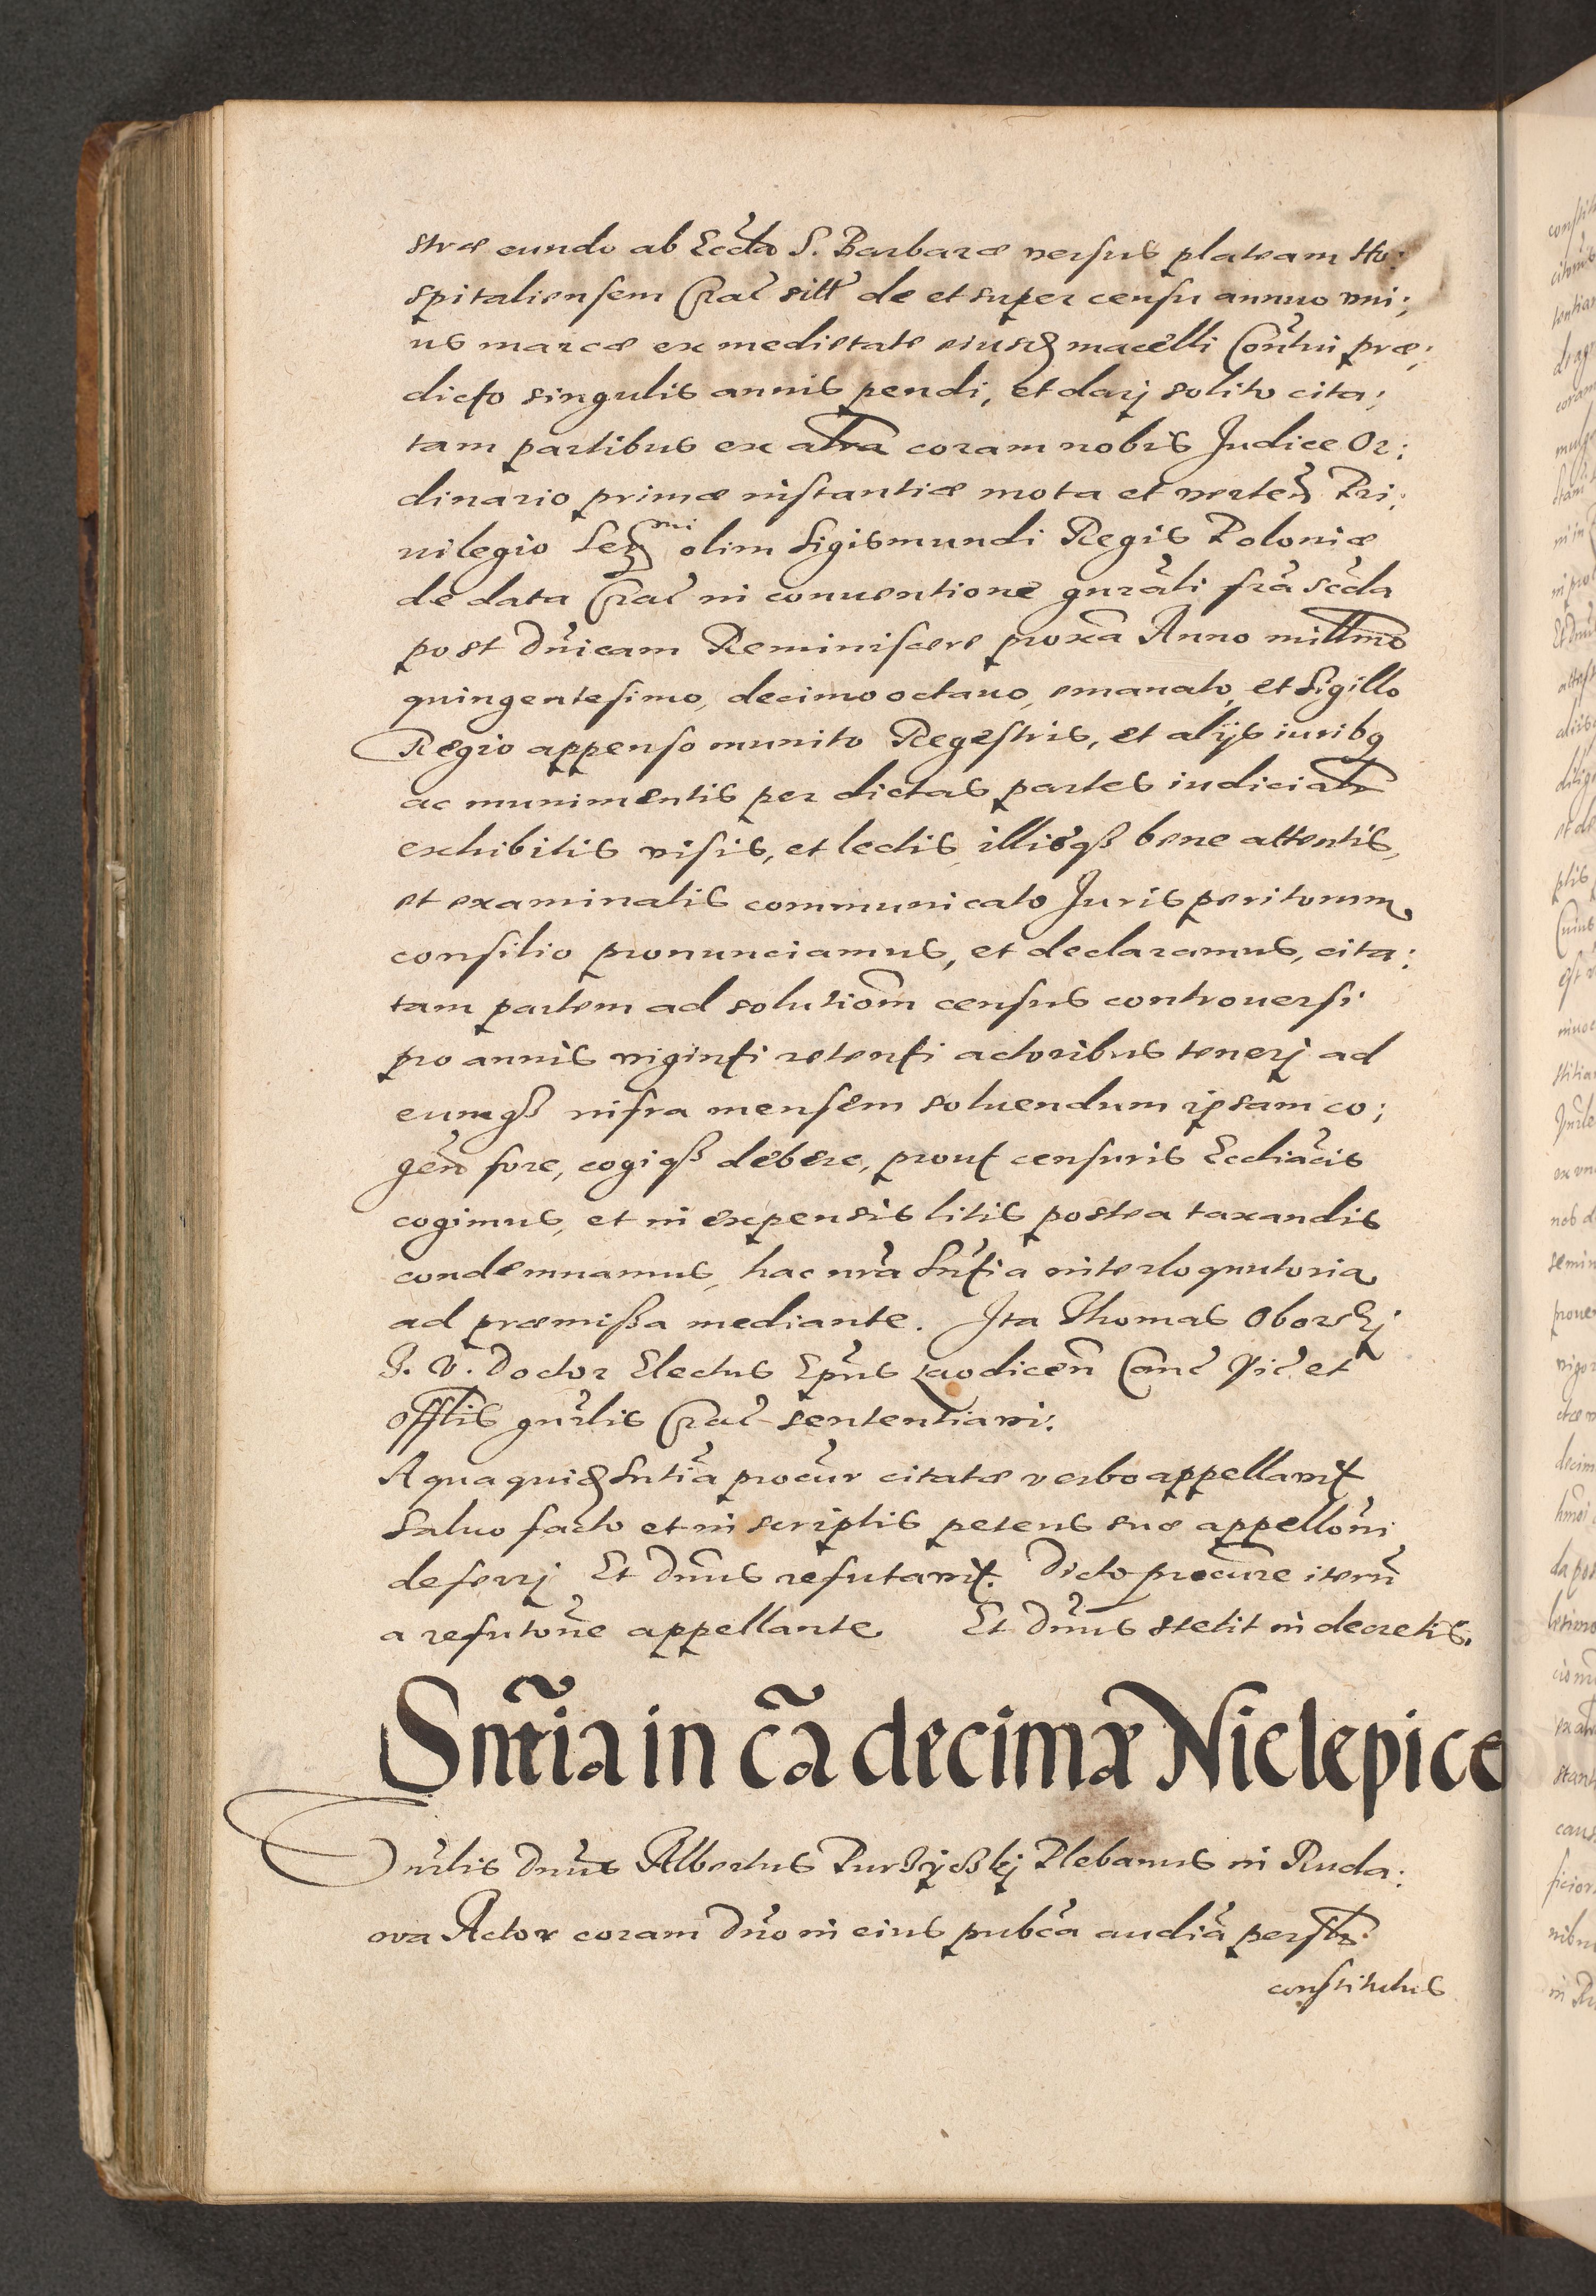 stræ eundo ab Eccła S. Barbaræ versus plateam Ho:
spitaliensem Crac̃ sitt̃ de et super censu annuo uni:
us marcæ ex medietate eiusd macelli Conṽtui præ:
dicto singulis annis pendi, et darj solito cita:
tam partibus ex altra coram nobis Judice Or:
dinario primæ instantiæ mota et verteñ Pri:
uilegio Ser mi olim Sigismundi Regis Poloniæ
de data Crac̃ in conuentione gñrali fr̃a sc̃da
post Dñicam Reminiscere prox̃a Anno millmo
quingentesimo, decimo octauo, emanato, et Sigillo
Regio appenso munito Regestris, et alijs iuribq
ac munimentis per dictas partes iudicialr
exhibitis visis, et lectis, illisqꝫ bene attentis,
et examinatis communicato Juris peritorum
consilio pronunciamus, et declaramus, cita:
tam partem ad solutiõm census controuersi
pro annis viginti retenti actoribus tenerj ad
eumqꝫ infra mensem soluendum ipsam co:
geñd fore, cogiqꝫ debere, prout censuris Eccliãcis
cogimus, et in expensis litis postea taxandis
condemnamus, hac nr̃a Sñtia interloquutoria
ad præmissa mediante. Ita Thomas Oborskj
J. V. Doctor Electus Epũs Laodiceñ Canc̃ Vic̃ et
Offlis gñrlis Crac̃ sententiaui:
A qua quid Sntĩa procũr citatæ verbo appellauit
Saluo facto et in scriptis petens suæ appellõni
deferrj Et Dñus refutauit. Dicto procũre iterũ
a refutõne appellante Et Dñus stetit in decretis.
Sntĩa in cã decimæ Nielepice
Vñrlis Dñus Albertus Purszyckj Plebanus in Ruda:
wa Actor coram Dño in eius pubc̃a audiã perslr
constitutus